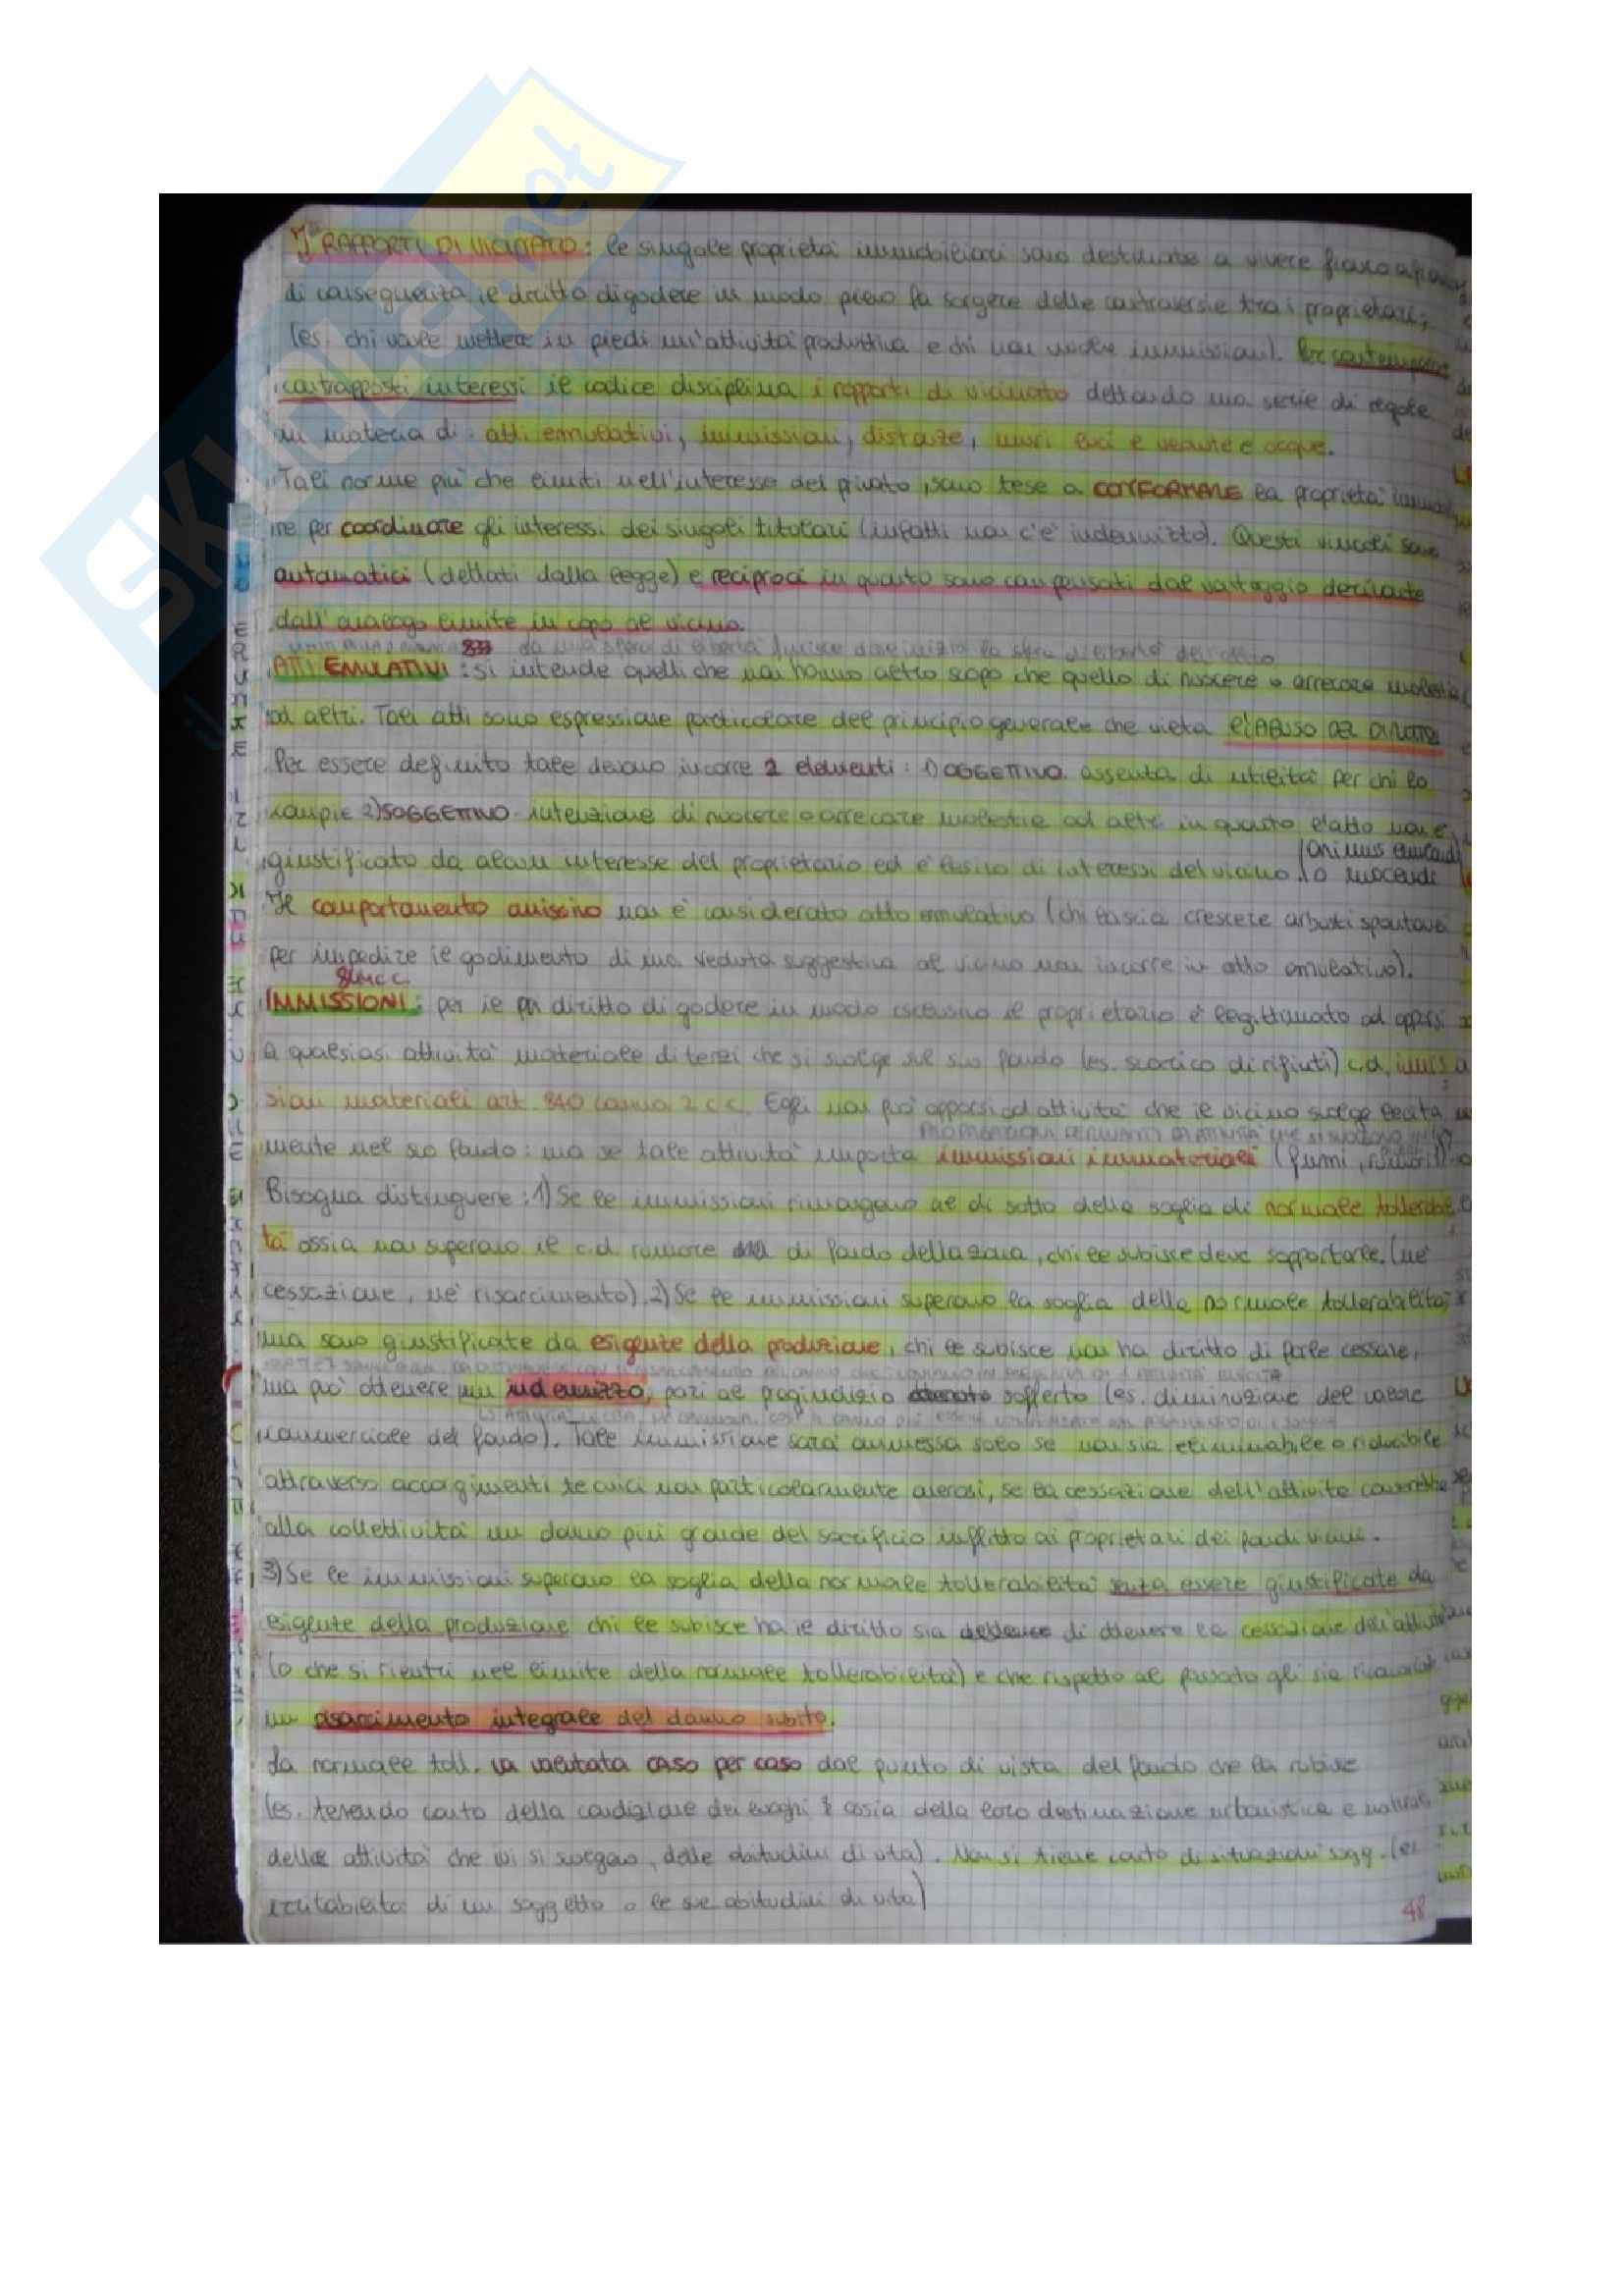 I RAPPORTI DI VICINATO: le singole proprietà immobiliari sono destinate a vivere fianco a fianco
di conseguenza il diritto di godere in modo pieno fa sorgere delle controversie tra i proprietari;
(es. chi vuole mettere in piedi un'attività produttiva e chi non vuole immissioni). Per contemperare
i contrapposti interessi il codice disciplina i rapporti di vicinato dettando una serie di regole
in materia di: atti emulativi, immissioni, distanze, muri luci e vedute e acque.
Tali norme più che limiti nell'interesse del privato, sono tese a CONFORMARE la proprietà
per coordinare gli interessi dei singoli titolari (infatti non c'è indennizzo). Questi vincoli sono
automatici (dettati dalla legge) e reciproci in quanto sono compensati dal vantaggio derivante
dall'analogo limite in capo al vicino.
833 da una sfera di libertà
ATTI EMULATIVI: si intende quelli che non hanno altro scopo che quello di nuocere o arrecare molestia
ad altri. Tali atti sono espressione particolare del principio generale che vieta l'ABUSO DEL DIRITTO
Per essere definito tale devono incorre 2 elementi: 1) OGGETTIVO assenza di utilità per chi lo
compie 2) SOGGETTIVO intenzione di nuocere o arrecare molestie ad altri in quanto l'atto non è
(animus
giustificato da alcun interesse del proprietario ed è lesivo di interessi del vicino o nocendi
Il comportamento omissivo non è considerato atto emulativo (chi lascia crescere arbusti spontanei
per impedire il godimento di una veduta suggestiva al vicino non incorre in atto emulativo).
844 c.c.
IMMISSIONI: per il diritto di godere in modo esclusivo il proprietario è legittimato ad opporsi
a qualsiasi attività materiale di terzi che si svolge sul suo fondo (es. scarico di rifiuti) c.d. immis
sioni materiali art. 840 comma 2 c.c. Egli non può opporsi ad attività che il vicino svolge lecita
PROPAGAZIONI DERIVANTI DA ATTIVITÀ CHE SI SVOLGONO
mente nel suo fondo: ma se tale attività importa immissioni immateriali (fumi, rumori)
Bisogna distinguere: 1) Se le immissioni rimangono al di sotto della soglia di normale tollerabili
tà ossia non superano il c.d. rumore di fondo della zona, chi le subisce deve sopportarle. (né
cessazione, né risarcimento). 2) Se le immissioni superano la soglia della normale tollerabilità,
ma sono giustificate da esigenze della produzione, chi le subisce non ha diritto di farle cessare,
ma può ottenere un indennizzo, pari al pregiudizio sofferto (es. diminuzione del valore
commerciale del fondo). Tale immissione sarà ammessa solo se non sia eliminabile o riducibile
attraverso accorgimenti tecnici non particolarmente onerosi, se la cessazione dell'attività
alla collettività un danno più grande del sacrificio inflitto ai proprietari dei fondi vicini.
3) Se le immissioni superano la soglia della normale tollerabilità senza essere giustificate da
esigenze della produzione chi le subisce ha il diritto sia di ottenere la cessazione dell'attività
(o che si rientri nel limite della normale tollerabilità) e che rispetto al passato gli sia
un risarcimento integrale del danno subito.
La normale toll. va valutata caso per caso dal punto di vista del fondo che la subisce
(es. tenendo conto della condizione dei luoghi ossia della loro destinazione urbanistica e
delle attività che vi si svolgono, delle abitudini di vita). Non si tiene conto di situazioni sogg. (es
irritabilità di un soggetto o le sue abitudini di vita)
48